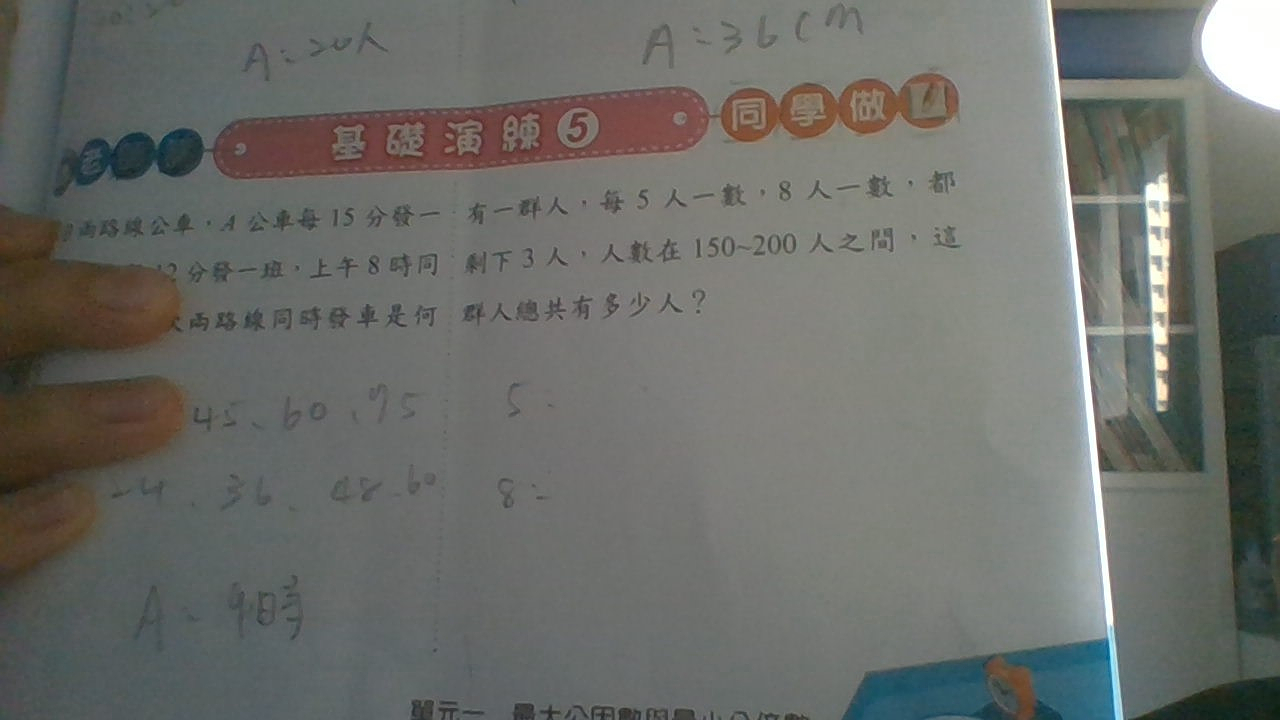 A=20人
A=36cm
基礎演練5
同學做
兩路線公車，A公車每15分發一
12分發一班，上午8時同
兩路線同時發車是何
45、60、75
24、36、48、60
A=9時
有一群人，每5人一數，8人一數，都
剩下3人，人數在150~200人之間，這
群人總共有多少人？
5=
8=
單元一 最大公因數與最小公倍數